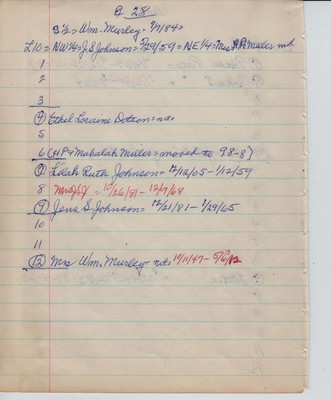 B 28
S½ = Wm. Murley = 9/9/84 =
L10 = NW¼ = J.S Johnson = 7/29/59 = NE¼ = Mrs H.P. Miller nd
1
2
3
④ Ethel Loraine Dotson = nd =
5
6 (HP & Makalah Miller = moved to 98-8)
⑦ Lilah Ruth Johnson = 12/12/05 - 1/12/59
8 Mrs J.S.J = 10/26/81 - 12/9/68
⑨ Jens S Johnson = 12/21/81 - 1/29/65
10
11
⑫ Mrs Wm. Murley - nd =